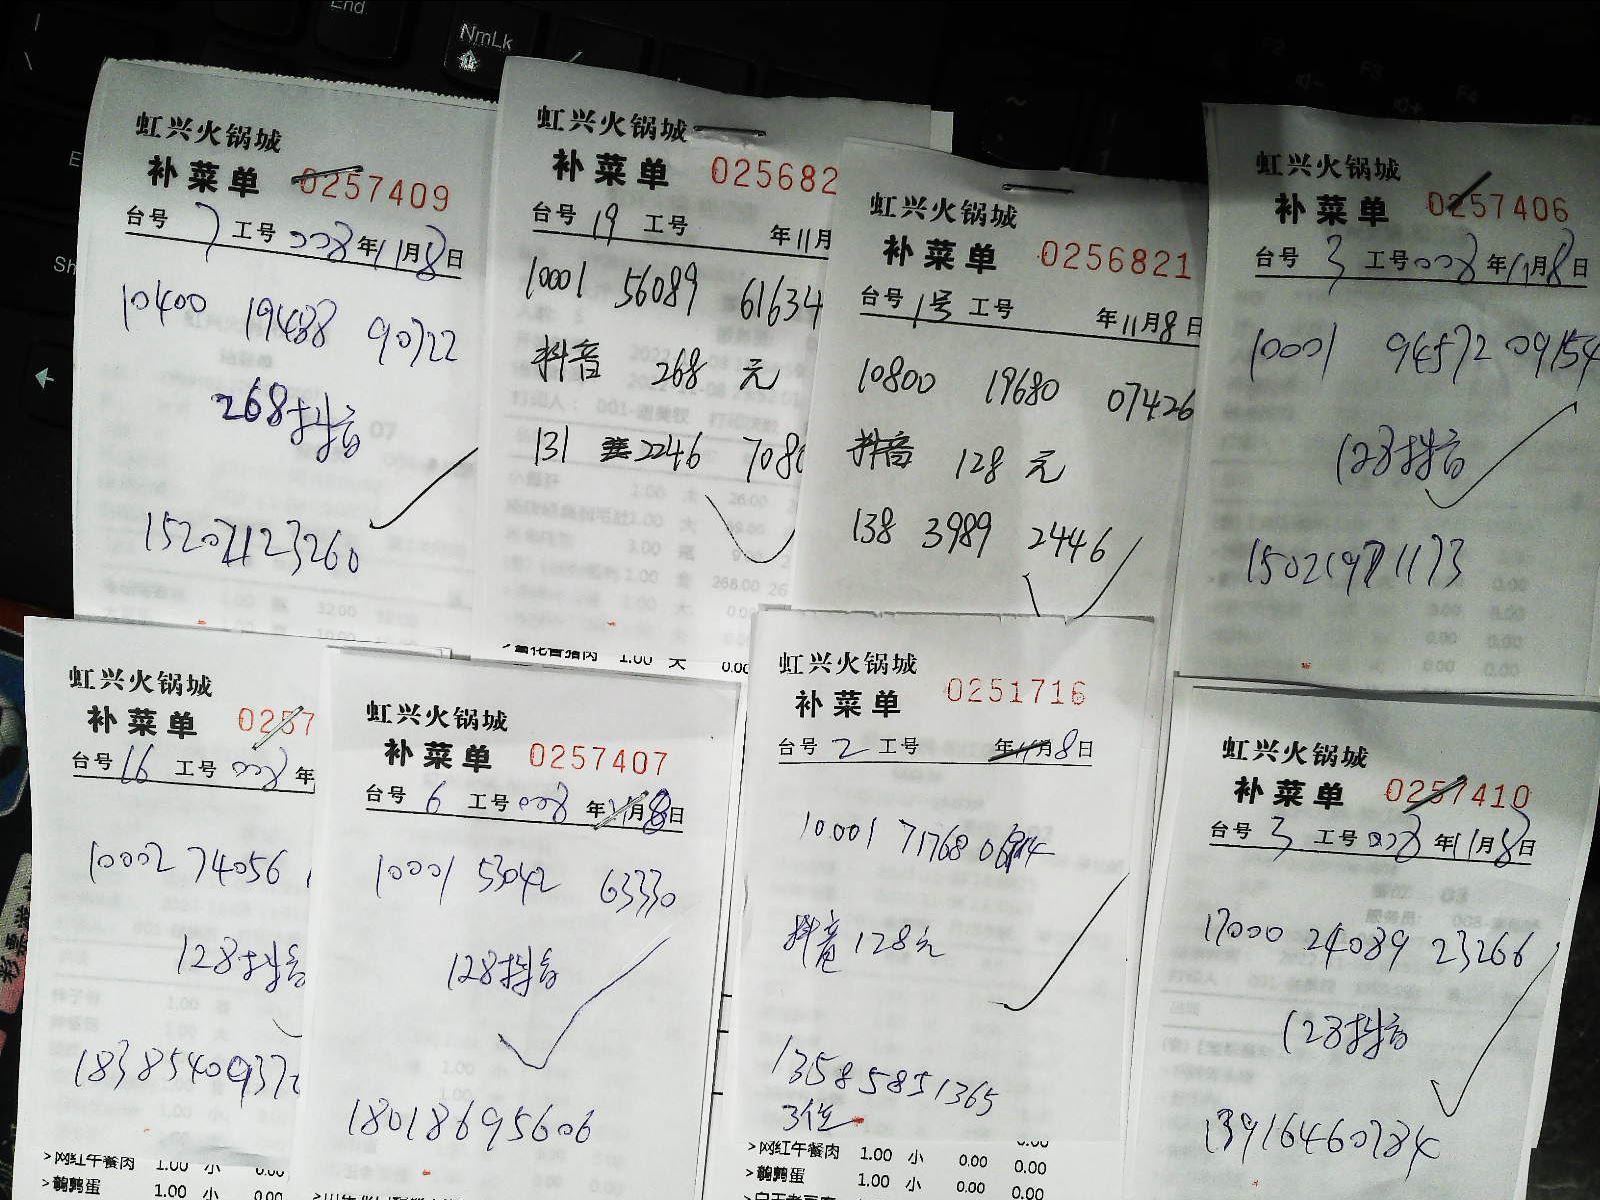 End
NmLk
虹兴火锅城
补菜单 0257409
台号 7 工号 008 年11月8日
10400 19488 90722
268抖音
15202123260
虹兴火锅城
补菜单 025682
台号 19 工号 年11月
10001 56089 61634
抖音 268 元
131 2246 708
虹兴火锅城
补菜单 0256821
台号 1号 工号 年11月8日
10800 19680 07426
抖音 128 元
138 3989 2446
虹兴火锅城
补菜单 0257406
台号 3 工号008 年11月8日
10001 94572 09154
128抖音
15021971173
>雪花香猪肉 1.00 大 0.00
虹兴火锅城
补菜单 0257
台号 16 工号 008 年
10002 74056
128抖音
1838540937
虹兴火锅城
补菜单 0257407
台号 6 工号 008 年11月8日
10001 53042 63330
128抖音
18018695606
虹兴火锅城
补菜单 0251716
台号 2 工号 年11月8日
10001 71768
抖音128元
13585851365
3位
虹兴火锅城
补菜单 0257410
台号 3 工号 008 年11月8日
17000 24089 23266
128抖音
13916460784
>网红午餐肉 1.00 小 0.00
>鹌鹑蛋 1.00 小 0.00
>网红午餐肉 1.00 小 0.00 0.00
>鹌鹑蛋 1.00 小 0.00 0.00